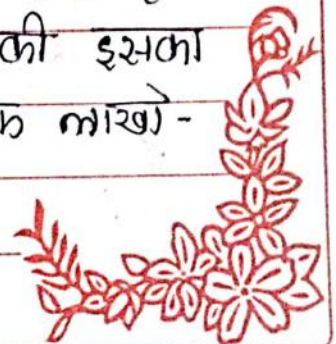 की इसका
लाखो -